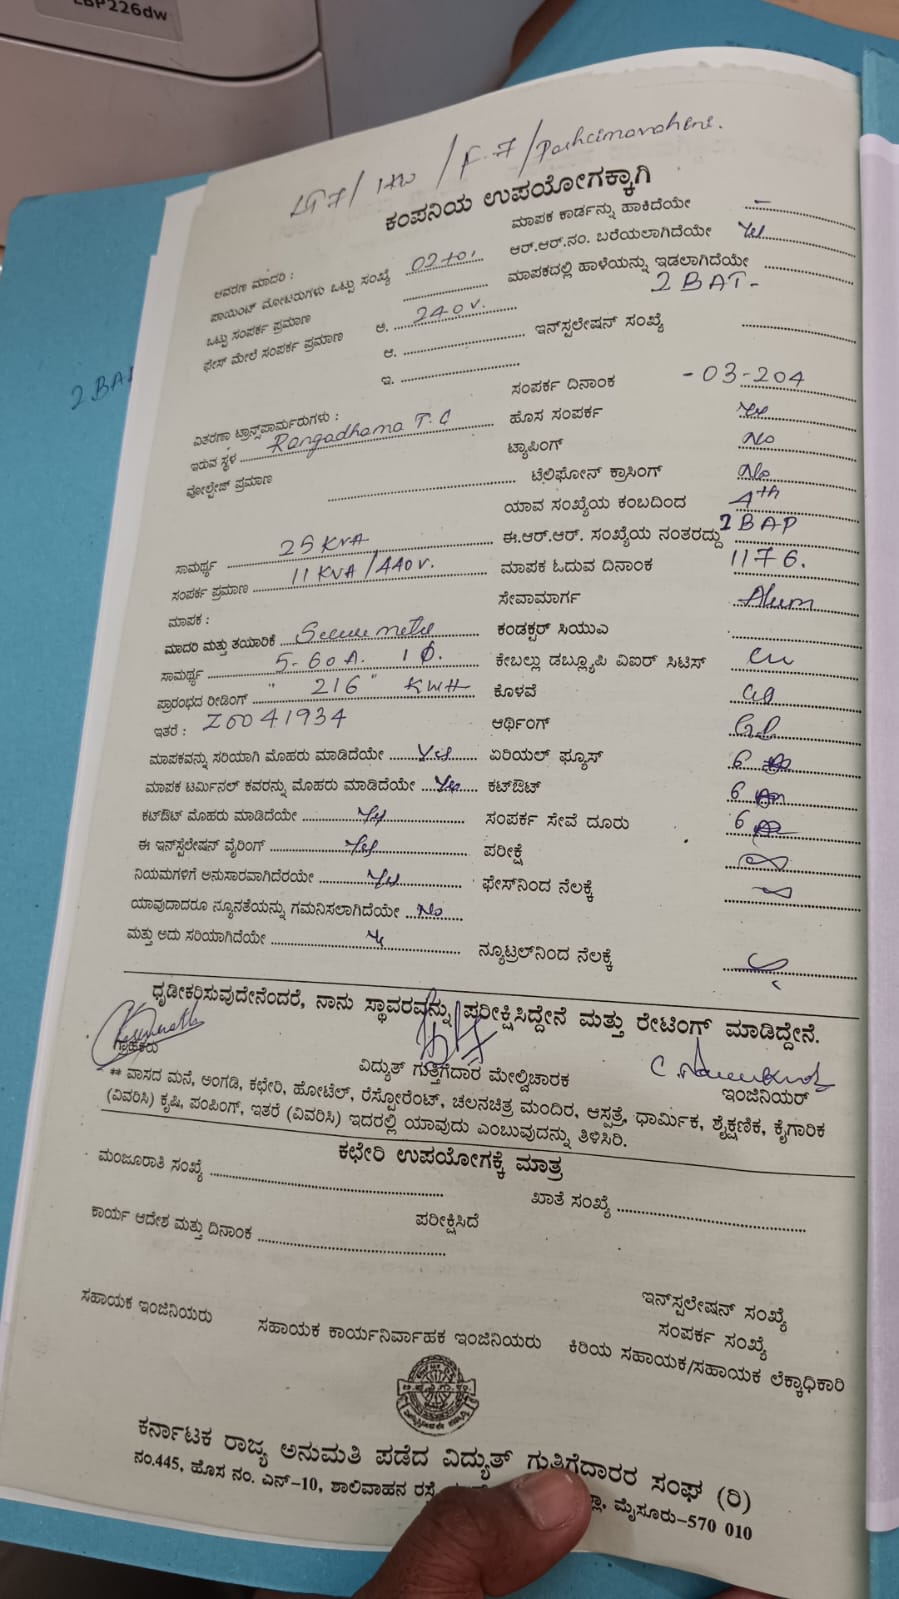 LBP226dw
/ F.7 / Pashcimavahini.
ಕಂಪನಿಯ ಉಪಯೋಗಕ್ಕಾಗಿ
ಆವರಣ ಮಾದರಿ : ಮಾಪಕ ಕಾರ್ಡನ್ನು ಹಾಕಿದೆಯೇ
ಪಾಯಿಂಟ್ ಮೋಟರುಗಳು ಒಟ್ಟು ಸಂಖ್ಯೆ ಆರ್.ಆರ್.ನಂ. ಬರೆಯಲಾಗಿದೆಯೇ Yes
ಒಟ್ಟು ಸಂಪರ್ಕ ಪ್ರಮಾಣ ಮಾಪಕದಲ್ಲಿ ಹಾಳೆಯನ್ನು ಇಡಲಾಗಿದೆಯೇ
ಫೇಸ್ ಮೇಲೆ ಸಂಪರ್ಕ ಪ್ರಮಾಣ ಅ. 240 v. 2 BAT-
ಆ. ಇನ್‌ಸ್ಪಲೇಷನ್ ಸಂಖ್ಯೆ
ಇ.
ಸಂಪರ್ಕ ದಿನಾಂಕ -03-204
ವಿತರಣಾ ಟ್ರಾನ್ಸ್‌ಪಾರ್ಮರುಗಳು : ಹೊಸ ಸಂಪರ್ಕ Yes
ಇರುವ ಸ್ಥಳ Rangadhama T.C ಟ್ಯಾಪಿಂಗ್ No
ವೋಲ್ಟೇಜ್ ಪ್ರಮಾಣ ಟೆಲಿಫೋನ್ ಕ್ರಾಸಿಂಗ್ No
ಯಾವ ಸಂಖ್ಯೆಯ ಕಂಬದಿಂದ 4th
ಸಾಮರ್ಥ್ಯ 25 KVA ಈ.ಆರ್.ಆರ್. ಸಂಖ್ಯೆಯ ನಂತರದ್ದು 2 BAP
ಸಂಪರ್ಕ ಪ್ರಮಾಣ 11 KVA /440 v. ಮಾಪಕ ಓದುವ ದಿನಾಂಕ 1176.
ಮಾಪಕ : ಸೇವಾಮಾರ್ಗ Alum
ಮಾದರಿ ಮತ್ತು ತಯಾರಿಕೆ ಕಂಡಕ್ಟರ್ ಸಿಯುಎ
ಸಾಮರ್ಥ್ಯ 5-60A. 1Ø. ಕೇಬಲ್ಲು ಡಬ್ಲ್ಯೂಪಿ ವಿಐರ್ ಸಿಟಿಸ್ cu
ಪ್ರಾರಂಭದ ರೀಡಿಂಗ್ "216" KWH ಕೊಳವೆ
ಇತರೆ : Z0041934 ಆರ್ಥಿಂಗ್
ಮಾಪಕವನ್ನು ಸರಿಯಾಗಿ ಮೊಹರು ಮಾಡಿದೆಯೇ Yes ಏರಿಯಲ್ ಫ್ಯೂಸ್ 6
ಮಾಪಕ ಟರ್ಮಿನಲ್ ಕವರನ್ನು ಮೊಹರು ಮಾಡಿದೆಯೇ Yes ಕಟ್‌ಔಟ್ 6
ಕಟ್‌ಔಟ್ ಮೊಹರು ಮಾಡಿದೆಯೇ Yes ಸಂಪರ್ಕ ಸೇವೆ ದೂರು 6
ಈ ಇನ್‌ಸ್ಪೆಲೇಷನ್ ವೈರಿಂಗ್ Yes ಪರೀಕ್ಷೆ
ನಿಯಮಗಳಿಗೆ ಅನುಸಾರವಾಗಿದೆರಯೇ Yes ಫೇಸ್‌ನಿಂದ ನೆಲಕ್ಕೆ
ಯಾವುದಾದರೂ ನ್ಯೂನತೆಯನ್ನು ಗಮನಿಸಲಾಗಿದೆಯೇ No
ಮತ್ತು ಅದು ಸರಿಯಾಗಿದೆಯೇ ನ್ಯೂಟ್ರಲ್‌ನಿಂದ ನೆಲಕ್ಕೆ
ಧೃಡೀಕರಿಸುವುದೇನೆಂದರೆ, ನಾನು ಸ್ಥಾವರವನ್ನು ಪರೀಕ್ಷಿಸಿದ್ದೇನೆ ಮತ್ತು ರೇಟಿಂಗ್ ಮಾಡಿದ್ದೇನೆ.
ಗ್ರಾಹಕರು ವಿದ್ಯುತ್ ಗುತ್ತಿಗೆದಾರ ಮೇಲ್ವಿಚಾರಕ ಇಂಜಿನಿಯರ್
** ವಾಸದ ಮನೆ, ಅಂಗಡಿ, ಕಛೇರಿ, ಹೋಟೆಲ್, ರೆಸ್ಟೋರೆಂಟ್, ಚಲನಚಿತ್ರ ಮಂದಿರ, ಆಸ್ಪತ್ರೆ, ಧಾರ್ಮಿಕ, ಶೈಕ್ಷಣಿಕ, ಕೈಗಾರಿಕ
(ವಿವರಿಸಿ) ಕೃಷಿ, ಪಂಪಿಂಗ್, ಇತರೆ (ವಿವರಿಸಿ) ಇದರಲ್ಲಿ ಯಾವುದು ಎಂಬುವುದನ್ನು ತಿಳಿಸಿರಿ.
ಕಛೇರಿ ಉಪಯೋಗಕ್ಕೆ ಮಾತ್ರ
ಮಂಜೂರಾತಿ ಸಂಖ್ಯೆ ಖಾತೆ ಸಂಖ್ಯೆ
ಕಾರ್ಯ ಆದೇಶ ಮತ್ತು ದಿನಾಂಕ ಪರೀಕ್ಷಿಸಿದೆ
ಇನ್‌ಸ್ಪಲೇಷನ್ ಸಂಖ್ಯೆ
ಸಂಪರ್ಕ ಸಂಖ್ಯೆ
ಸಹಾಯಕ ಇಂಜಿನಿಯರು ಸಹಾಯಕ ಕಾರ್ಯನಿರ್ವಾಹಕ ಇಂಜಿನಿಯರು ಕಿರಿಯ ಸಹಾಯಕ/ಸಹಾಯಕ ಲೆಕ್ಕಾಧಿಕಾರಿ
ಕರ್ನಾಟಕ ರಾಜ್ಯ ಅನುಮತಿ ಪಡೆದ ವಿದ್ಯುತ್ ಗುತ್ತಿಗೆದಾರರ ಸಂಘ (ರಿ)
ನಂ.445, ಹೊಸ ನಂ. ಎನ್-10, ಶಾಲಿವಾಹನ ರಸ್ತೆ, ಮೈಸೂರು-570 010